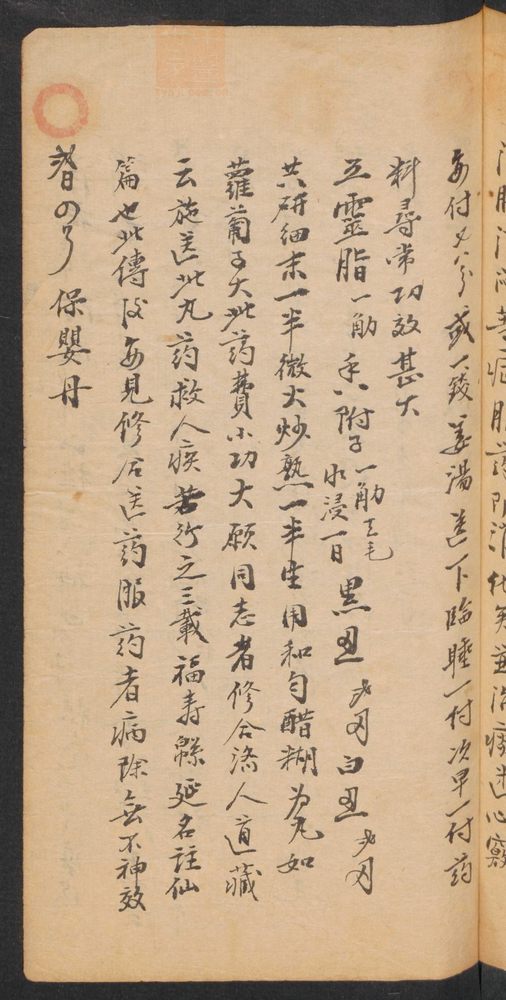 每付又八分或一錢姜湯送下臨睡一付次早一付药
料尋常功效甚大
五靈脂一觔 香附子一觔去毛水浸一日 黑丑 白丑
共研細末一半微火炒熟一半生用和勻醋糊为丸如
蘿蔔子大此药費小功大願同志者修合濟人道藏
云施送此丸药救人疾苦行之三載福寿緜延名註仙
篇也此傳後每見修合送药服药者病除無不神效
保嬰丹